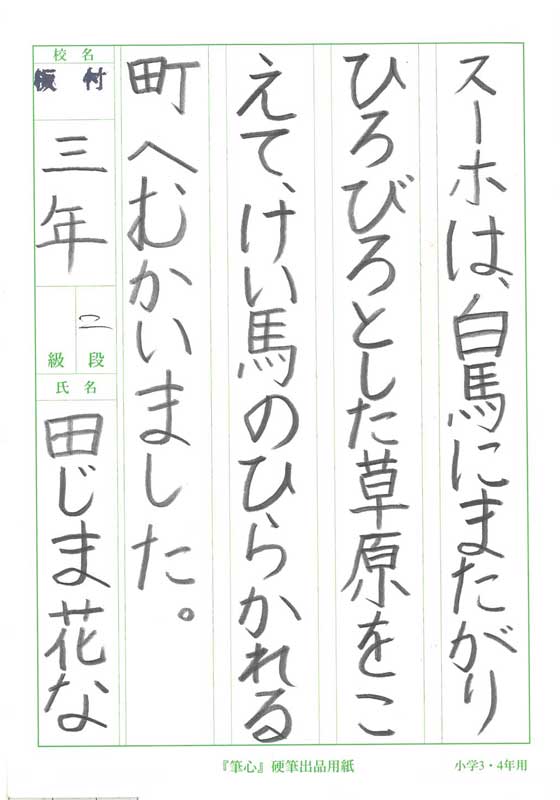 スーホは、白馬にまたがり
ひろびろとした草原をこ
えて、けい馬のひらかれる
町へむかいました。
校名
三年
二
段
級
氏名
田じま花な
『筆心』硬筆出品用紙
小学3・4年用